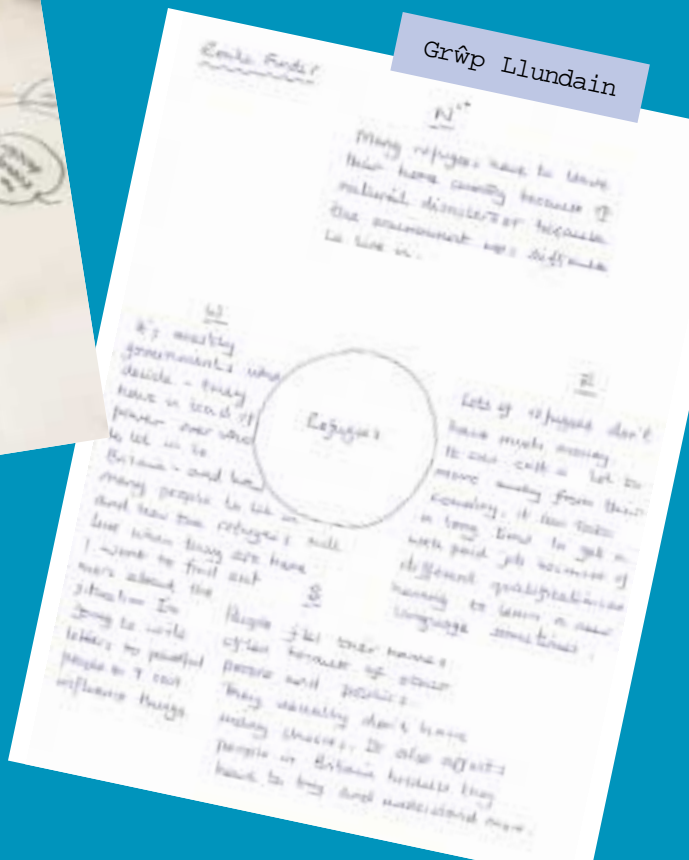 Grŵp Llundain
Route Finder
N
Many refugees have to leave
their home country because of
natural disasters or because
the environment was difficult
to live in.
W
It's mostly
governments who
decide - they
have a load of
power over who
to let in to
Britain - and how
many people to let in
and how the refugees will
live when they are here
I want to find out
more about the
situation I'm
going to write
letters to powerful
people so I can
influence things
Refugees
E
Lots of refugees don't
have much money.
It can cost a lot to
move away from their
country, it can take
a long time to get a
well paid job because of
different qualifications
having to learn a new
language sometimes.
S
People flee their homes
often because of other
people and politics.
They usually don't have
many choices. It also affects
people in Britain besides they
have to try and understand more.